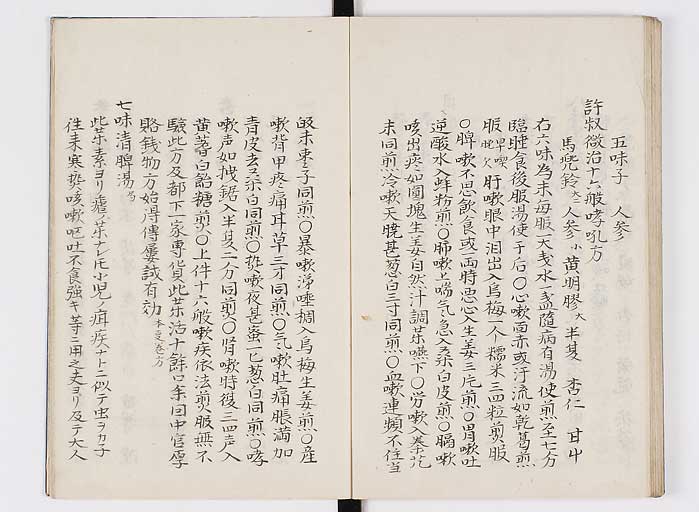 五味子 人参
許叔微治十六般哮吼方
馬兜鈴 人参 小 黄明膠 大 半夏 杏仁 甘艸
右六味為末每服一大戋水一盞随病有湯使煎至七分
臨睡食後服湯使于后〇心嗽面赤或汗流如乾葛煎
服 〇肝嗽眼中泪出入烏梅一ケ糯米三四粒煎服
〇脾嗽不思飲食或一両時悪心入生姜三片煎〇胃嗽吐
逆酸水入蚌粉煎〇肺嗽上喘气急入桑白皮煎〇膈嗽
咳出疼如圓塊生姜自然汁調藥嚥下〇労嗽入秦艽
末同煎冷嗽天暁甚葱白三寸同煎〇血嗽連頻不住当
皈末棗子同煎〇暴嗽涕唾稠入烏梅生姜煎〇産
嗽背甲疼痛甘草三寸同煎〇气嗽肚痛脹満加
青皮去桑白同煎〇熱嗽夜甚蜜一匕葱白同煎〇哮
嗽声如拽鋸入半夏二分同煎〇腎嗽時復三四声入
黄蓍白飴糖煎〇上件十六般嗽疾依法煎服無不
驗此方及都下一家専貨此藥治十餘口某因中官厚
賂銭物方始得傳屢試有効 本支巻方
七味清脾湯
此藥素ヨリ瘧ノ藥ナレ𪜈小児ノ疳疾ナトニ似テ虫ヲカ子
往来寒熱咳嗽嘔吐不食強キ等ニ用之丈ヨリ及テ大人